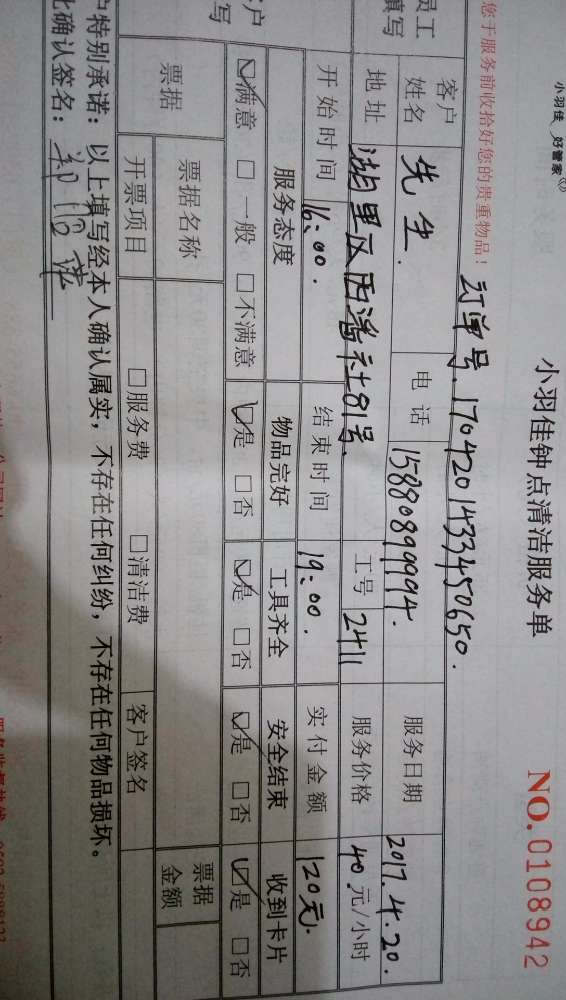 小羽佳 好管家
小羽佳钟点清洁服务单
NO.0108942
您于服务前收拾好您的贵重物品！
订单号.170420143345065​0.
员工填写
客户姓名 先生. 电话 15880899994. 服务日期 2017.4.20.
地址 湖里区西潘社81号. 工号 2411 服务价格 40.元/小时
开始时间 16:00. 结束时间 19:00. 实付金额 120元.
服务态度 物品完好 工具齐全 安全结束 收到卡片
☑满意 □一般 □不满意 ☑是 □否 ☑是 □否 ☑是 □否 ☑是 □否
票据 票据名称 票据金额
开票项目 □服务费 □清洁费 客户签名
户特别承诺：以上填写经本人确认属实，不存在任何纠纷，不存在任何物品损坏。
此确认签名：